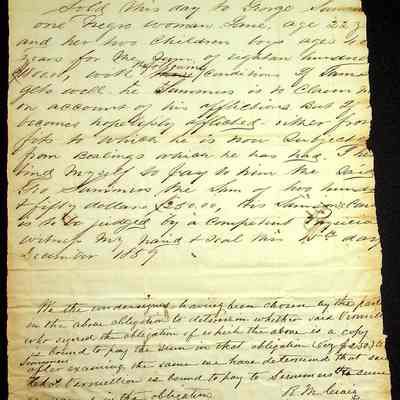 Sold this day to George Summers
one Negro woman Jane, age 22 y
and her two children boys ages
years for the Sum of eighteen hundred
following
conditions if James
gets well he Summers is to claim
on account of his afflictions But if
becomes hopelessly afflicted either from
fits to which he is now Subject
from which he has had. I he
bind myself to pay to him the said
Geo, Summers the sum of two hund
& fifty dollars $250.00, this
is to be judged by a Competent Physician
witness my hand & seal this day
December 1859
We the undersigned having been chosen by the parti
in the above obligation to determine whether said
who signed the obligation of which the above is a copy
is bound to pay the sum in that obligation ($250) to
Summers
after examining the same we have determined that sai
Vermillion is bound to pay to Summers the same
in the obligation